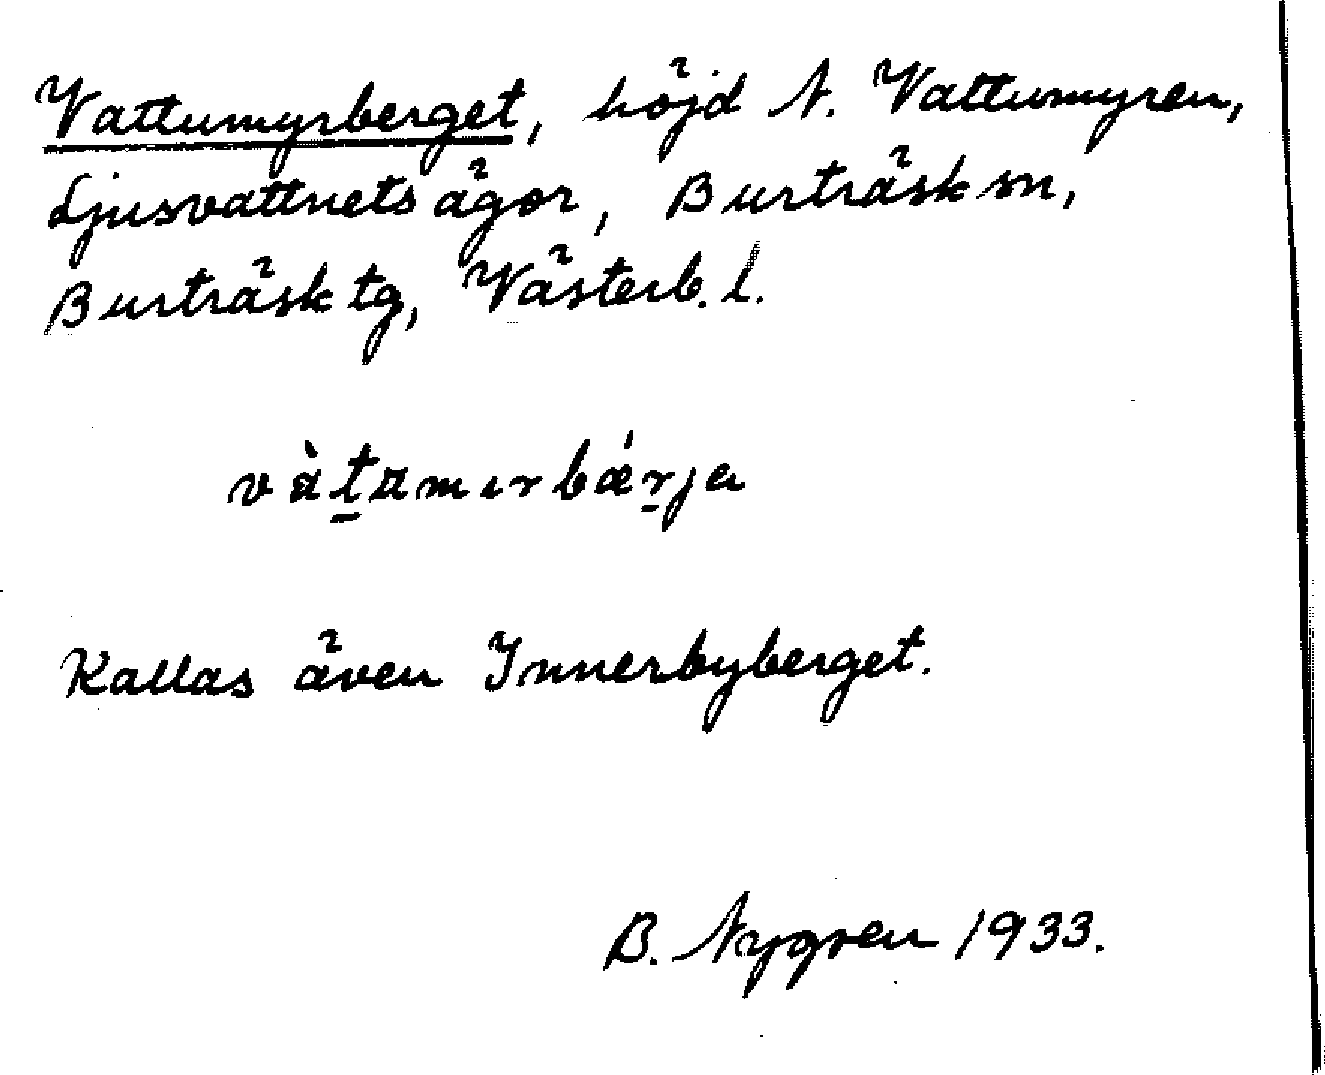 Vattumyrberget, höjd N. Vattumyren,
Ljusvattnets ägor, Burträsk sn,
Burträsk tg, Västerb. l.
vàt̲amırbǽr̲ja
Kallas även Innerbyberget.
B. Nygren 1933.